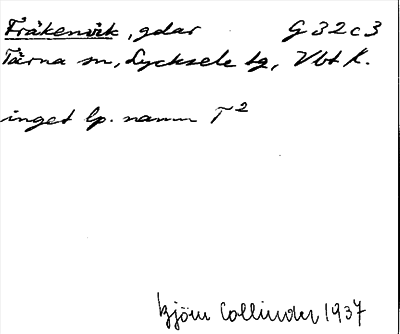 Fräkenvik, gdar G 32c3
Tärna sn, Lycksele lg, Vbt K.
inget lp. namn T²
Björn Collinder 1937